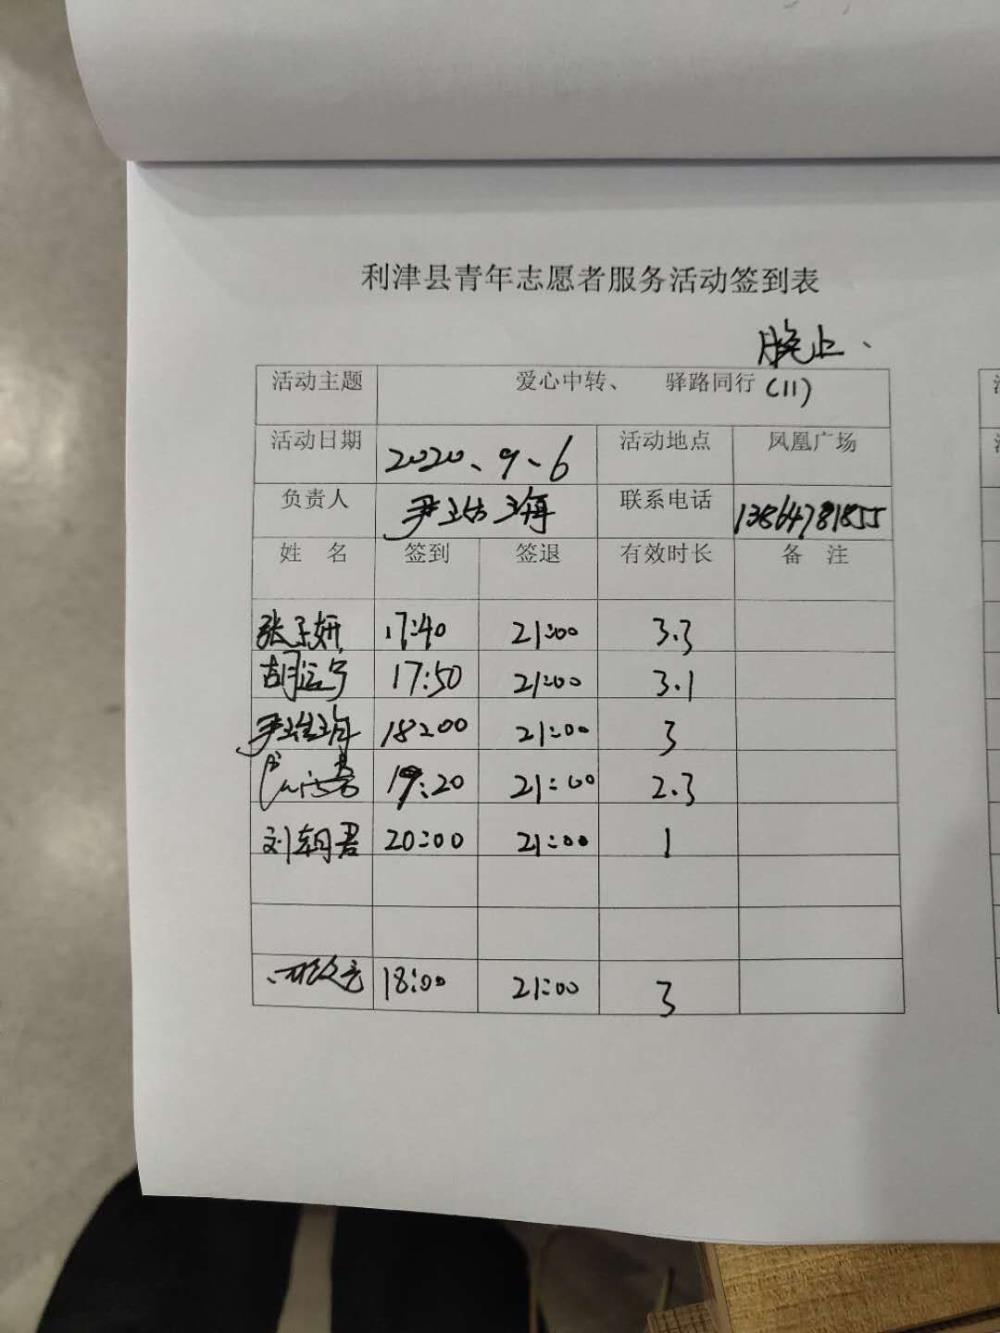 利津县青年志愿者服务活动签到表
晚上
活动主题 爱心中转、 驿路同行 (11)
活动日期 2020、9、6 活动地点 凤凰广场
负责人 联系电话 13864781855
姓 名 签到 签退 有效时长 备 注
张子妍 17:40 21:00 3.3
17:50 21:00 3.1
18:00 21:00 3
19:20 21:00 2.3
刘朝君 20:00 21:00 1
18:00 21:00 3